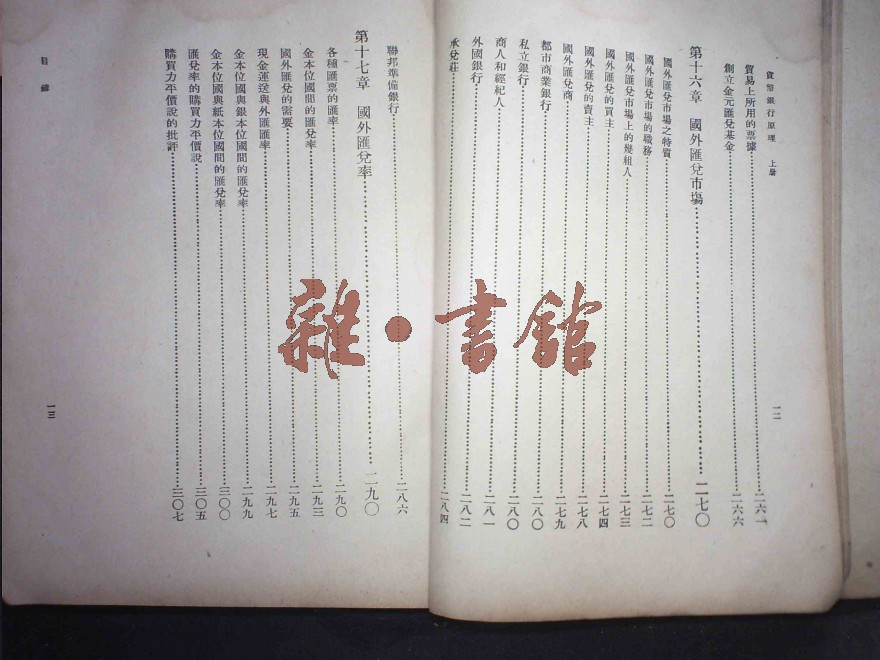 貨幣銀行原理　上册
一二
貿易上所用的票據……二六一
創立金元匯兌基金……二六六
第十六章　國外匯兌市場……二七〇
國外匯兌市場之特質……二七〇
國外匯兌市場的職務……二七二
國外匯兌市場上的幾組人……二七三
國外匯兌的買主……二七四
國外匯兌的賣主……二七八
國外匯兌商……二七九
都市商業銀行……二八〇
私立銀行……二八〇
商人和經紀人……二八一
外國銀行……二八二
承兌莊……二八四
聯邦準備銀行……二八六
第十七章　國外匯兌率……二九〇
各種匯票的匯率……二九〇
金本位國間的匯兌率……二九三
國外匯兌的需要……二九五
現金運送與外匯匯率……二九七
金本位國與銀本位國間的匯兌率……二九九
金本位國與紙本位國間的匯兌率……三〇〇
匯兌率的購買力平價說……三〇五
購買力平價說的批評……三〇七
目錄
一三
雜·書館